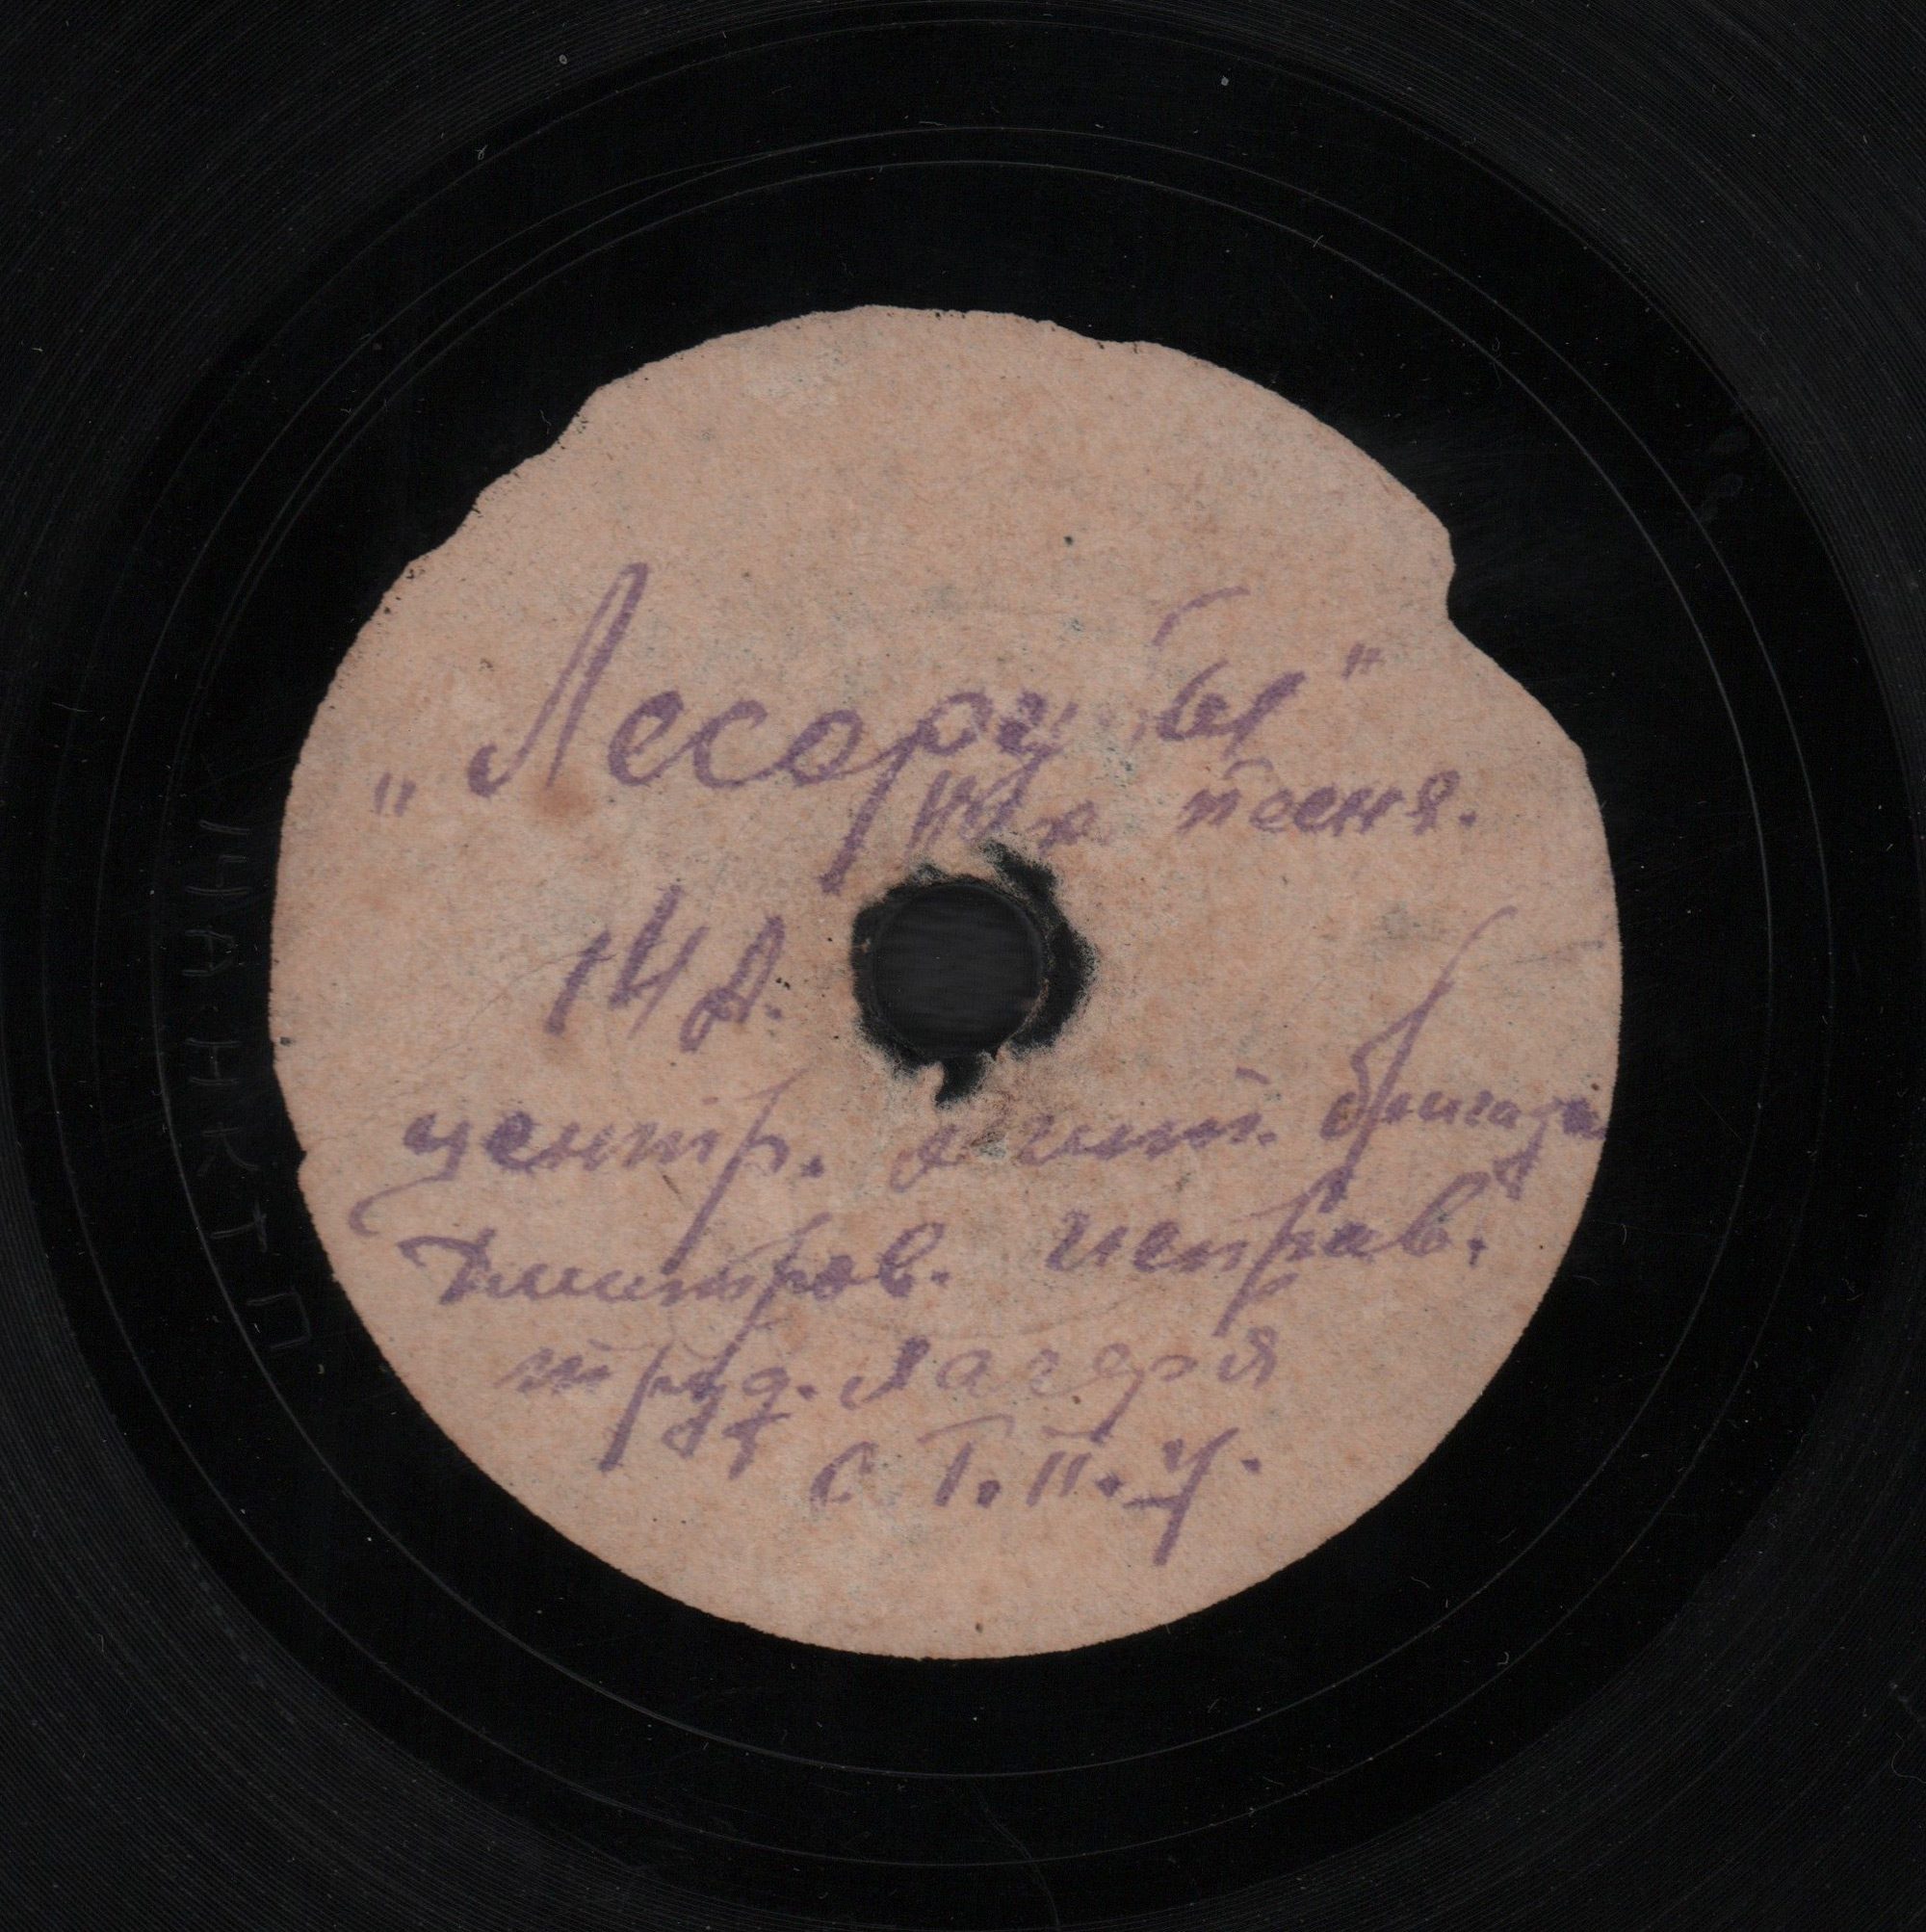 „Лесорубы"
песня.
14 А.
центр. агит. бригада
Дмитров. исправ.
труд. лагеря
О Г. П. У.